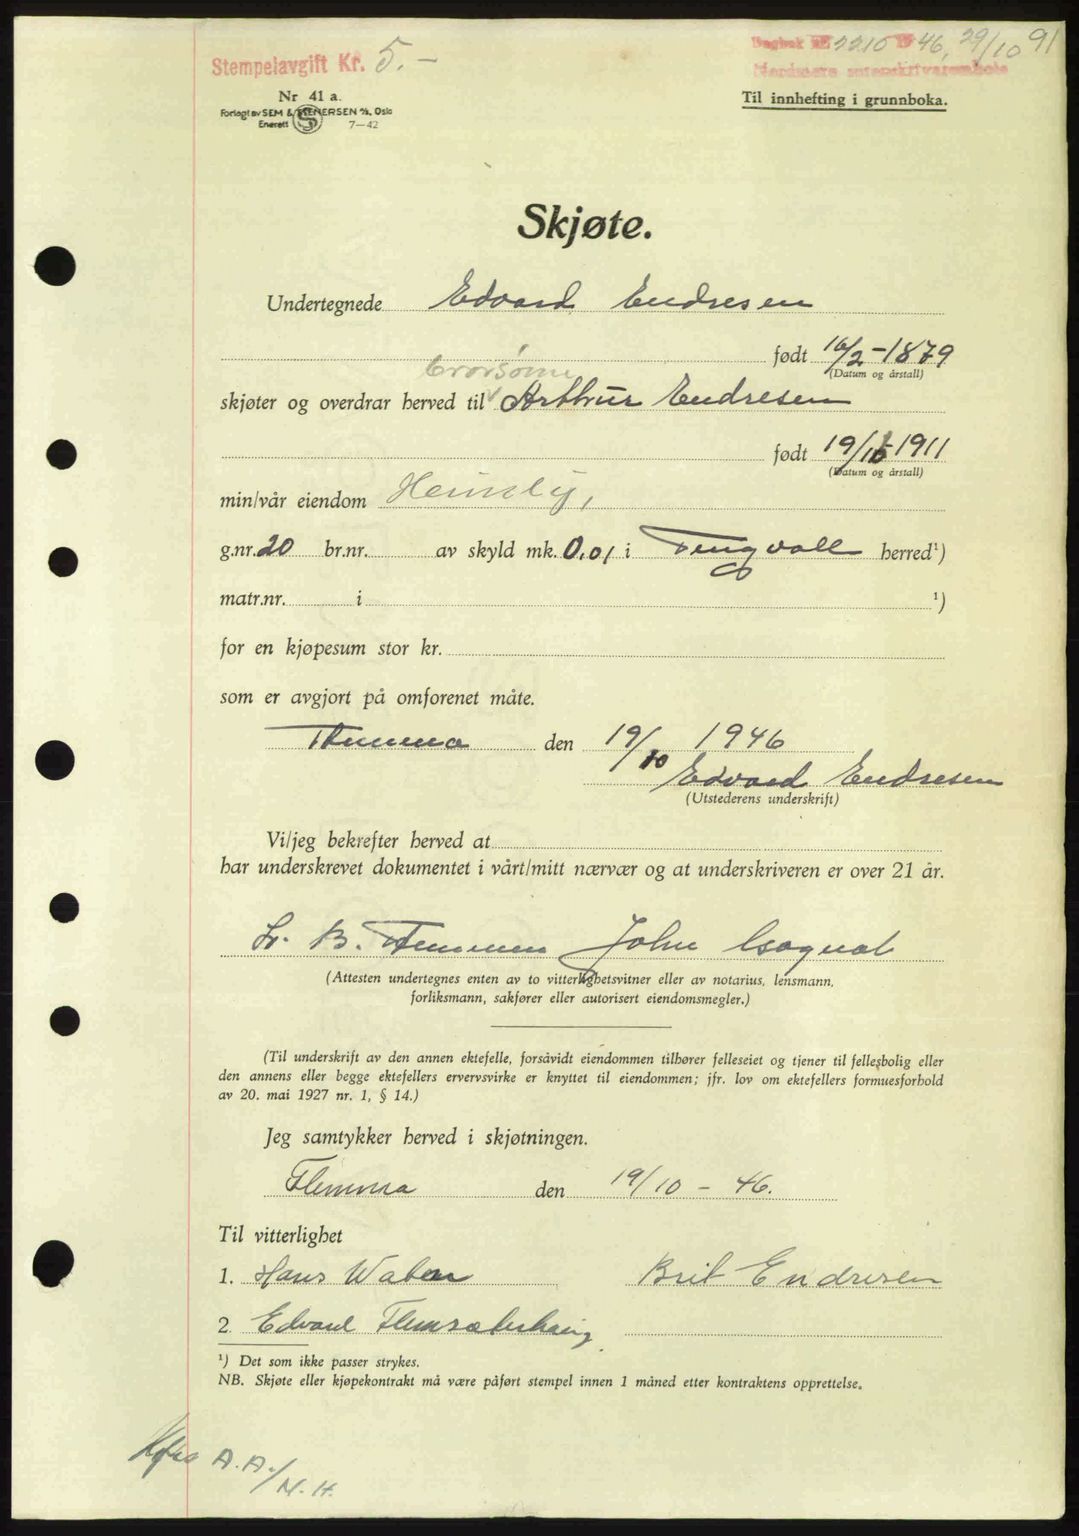 Stempelavgift Kr. 5.-
Dagbok nr. 2210 19 46, 29/10 91
Nordmøre sorenskriverembete
Nr 41 a.
Forlagt av SEM & STENERSEN A/S, Oslo
Enerett S 7-42
Til innhefting i grunnboka.
Skjøte.
Undertegnede Edvard Endresen
født 16/2-1879
(Datum og årstall)
brorsønn
skjøter og overdrar herved til Arthur Endresen
født 19/11-1911
(Datum og årstall)
min/vår eiendom Heimly,
g.nr. 20 br.nr. av skyld mk. 0,01 i Tingvoll herred¹)
matr.nr. i ¹)
for en kjøpesum stor kr.
som er avgjort på omforenet måte.
Flemma den 19/10 1946
Edvard Endresen
(Utstederens underskrift)
Vi/jeg bekrefter herved at
har underskrevet dokumentet i vårt/mitt nærvær og at underskriveren er over 21 år.
B. Flemmen John
(Attesten undertegnes enten av to vitterlighetsvitner eller av notarius, lensmann,
forliksmann, sakfører eller autorisert eiendomsmegler.)
(Til underskrift av den annen ektefelle, forsåvidt eiendommen tilhører felleseiet og tjener til fellesbolig eller
den annens eller begge ektefellers ervervsvirke er knyttet til eiendommen; jfr. lov om ektefellers formuesforhold
av 20. mai 1927 nr. 1, § 14.)
Jeg samtykker herved i skjøtningen.
Flemma den 19/10 - 46.
Til vitterlighet
1. Hans Brit Endresen
2. Edvard
¹) Det som ikke passer strykes.
NB. Skjøte eller kjøpekontrakt må være påført stempel innen 1 måned etter kontraktens opprettelse.
A.A./N.H.